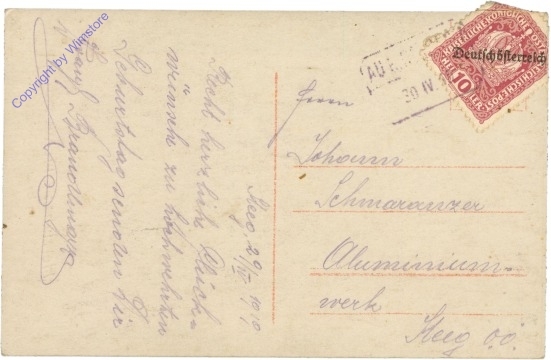 Copyright by Wimstore
Steeg 29/IV 1919
Recht herzliche Glück-
wünsche zu
Geburtstag senden Dir
Brandlmayr
Deutschösterreich
10
30 IV
Herrn
Johann
Schmaranzer
Aluminium-
werk
Steeg O.Ö.